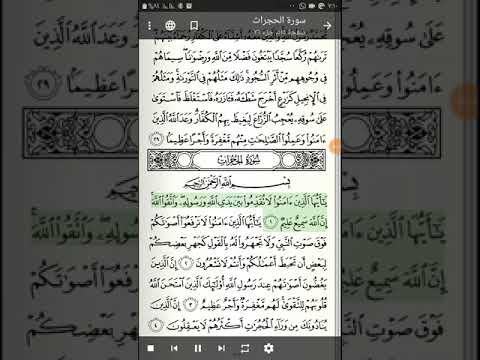 سورة الحجرات
تَرَىٰهُمْ رُكَّعًا سُجَّدًا يَبْتَغُونَ فَضْلًا مِّنَ ٱللَّهِ وَرِضْوَٰنًا سِيمَاهُمْ
فِي وُجُوهِهِم مِّنْ أَثَرِ ٱلسُّجُودِ ذَٰلِكَ مَثَلُهُمْ فِي ٱلتَّوْرَىٰةِ وَمَثَلُهُمْ
فِي ٱلْإِنجِيلِ كَزَرْعٍ أَخْرَجَ شَطْـَٔهُۥ فَـَٔازَرَهُۥ فَٱسْتَغْلَظَ فَٱسْتَوَىٰ
عَلَىٰ سُوقِهِۦ يُعْجِبُ ٱلزُّرَّاعَ لِيَغِيظَ بِهِمُ ٱلْكُفَّارَ وَعَدَ ٱللَّهُ ٱلَّذِينَ
ءَامَنُوا۟ وَعَمِلُوا۟ ٱلصَّٰلِحَٰتِ مِنْهُم مَّغْفِرَةً وَأَجْرًا عَظِيمًا ٢٩
سُورَةُ الحُجُرَاتِ
بِسْمِ ٱللَّهِ ٱلرَّحْمَٰنِ ٱلرَّحِيمِ
يَٰٓأَيُّهَا ٱلَّذِينَ ءَامَنُوا۟ لَا تُقَدِّمُوا۟ بَيْنَ يَدَيِ ٱللَّهِ وَرَسُولِهِۦ وَٱتَّقُوا۟ ٱللَّهَ
إِنَّ ٱللَّهَ سَمِيعٌ عَلِيمٌ ١ يَٰٓأَيُّهَا ٱلَّذِينَ ءَامَنُوا۟ لَا تَرْفَعُوٓا۟ أَصْوَٰتَكُمْ
فَوْقَ صَوْتِ ٱلنَّبِيِّ وَلَا تَجْهَرُوا۟ لَهُۥ بِٱلْقَوْلِ كَجَهْرِ بَعْضِكُمْ
لِبَعْضٍ أَن تَحْبَطَ أَعْمَٰلُكُمْ وَأَنتُمْ لَا تَشْعُرُونَ ٢ إِنَّ ٱلَّذِينَ
يَغُضُّونَ أَصْوَٰتَهُمْ عِندَ رَسُولِ ٱللَّهِ أُو۟لَٰٓئِكَ ٱلَّذِينَ ٱمْتَحَنَ ٱللَّهُ
قُلُوبَهُمْ لِلتَّقْوَىٰ لَهُم مَّغْفِرَةٌ وَأَجْرٌ عَظِيمٌ ٣ إِنَّ ٱلَّذِينَ
يُنَادُونَكَ مِن وَرَآءِ ٱلْحُجُرَٰتِ أَكْثَرُهُمْ لَا يَعْقِلُونَ ٤